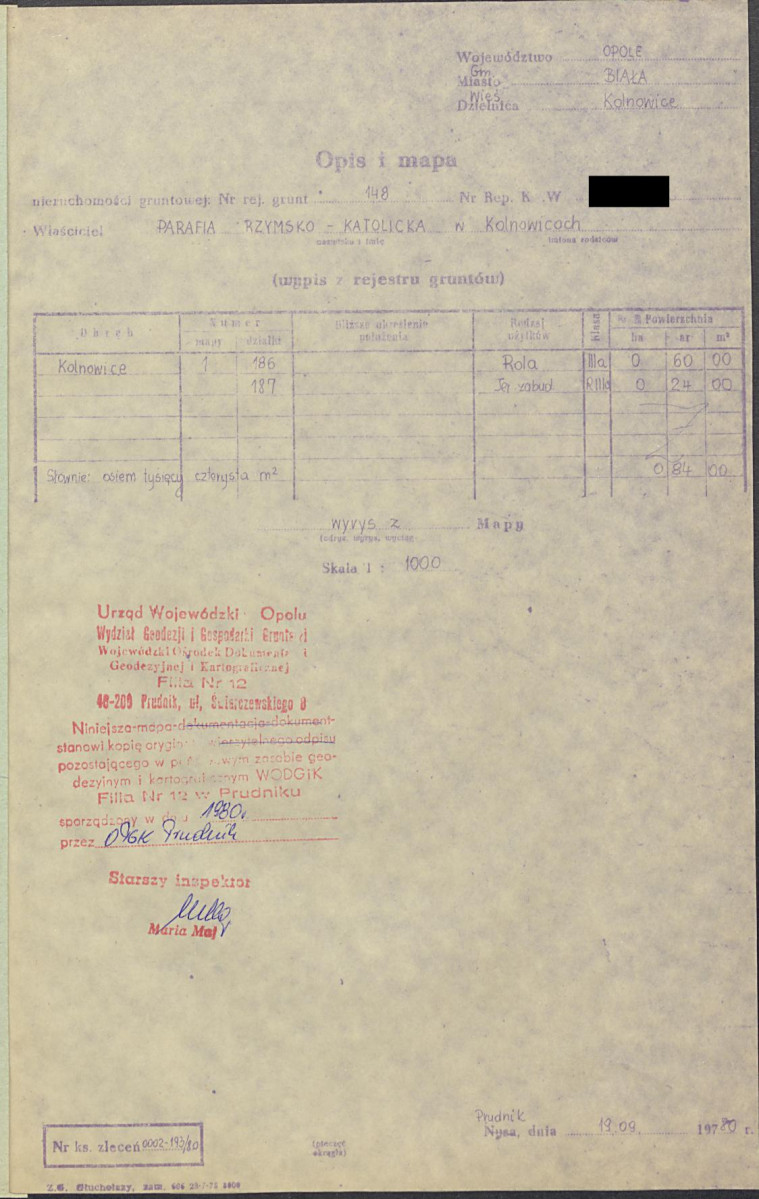 Województwo OPOLE
Gm.
Miasto BIAŁA
Wieś
Dzielnica Kolnowice
Opis i mapa
nieruchomości gruntowej: Nr rej. grunt 148 Nr Rep. K. W
Właściciel PARAFIA RZYMSKO - KATOLICKA w Kolnowicach
nazwisko i imię imiona rodziców
(wypis z rejestru gruntów)
Obręb Numer Bliższe określenie położenia Rodzaj użytków Klasa Powierzchnia
mapy działki ha ar m²
Kolnowice 1 186 Rola IIIa 0 60 00
187 Ter. zabud RIIIa 0 24 00
Słownie: osiem tysięcy czterysta m² 0 84 00
wyrys z Mapy
(odrys, wyrys, wyciąg)
Skala 1 : 1000
Urząd Wojewódzki Opolu
Wydział Geodezji i Gospodarki
Wojewódzki Ośrodek
Geodezyjnej i Kartograficznej
Filia Nr 12
48-200 Prudnik, ul. Świerczewskiego 8
Niniejsza-mapa-dokumentacja-dokument-
stanowi kopię wierzytelnego odpisu
pozostającego w zasobie geo-
dezyjnym i kartograficznym WODGiK
Filia Nr 12 w Prudniku
sporządzony w dniu 1980r.
przez OPGK Prudnik
Starszy inspektor
Maria Maj
Prudnik
Nysa, dnia 19.09. 1980 r.
Nr ks. zleceń 0002-193/80
(pieczęć
okrągła)